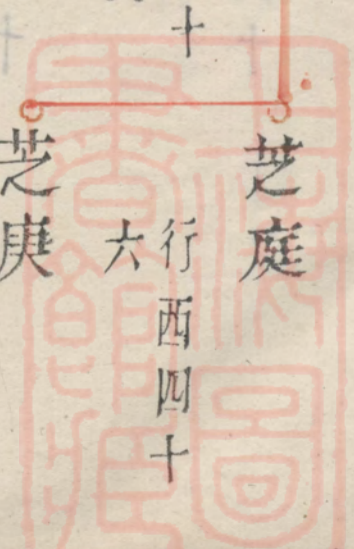 十
芝庭
行西四十
六
芝庚